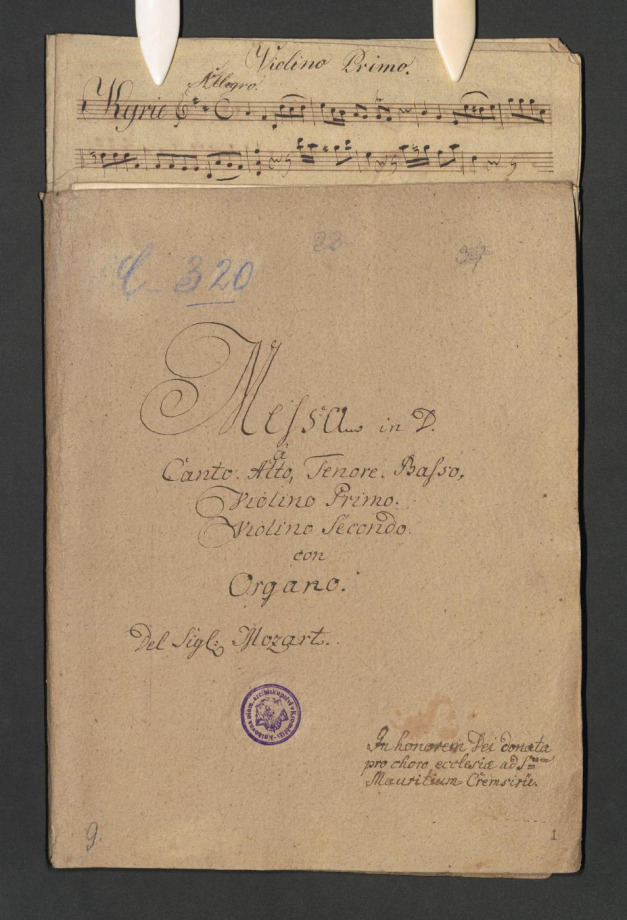 Violino Primo.
Allegro.
Kyrie
23
C 320
Messa in D.
à
Canto. Alto, Tenore. Basso,
Violino Primo.
Violino Secondo.
con
Organo.
Del Sigl: Mozart.
In honorem Dei donata
pro choro ecclesiæ ad S
Mauritium Cremsirii.
9.
1